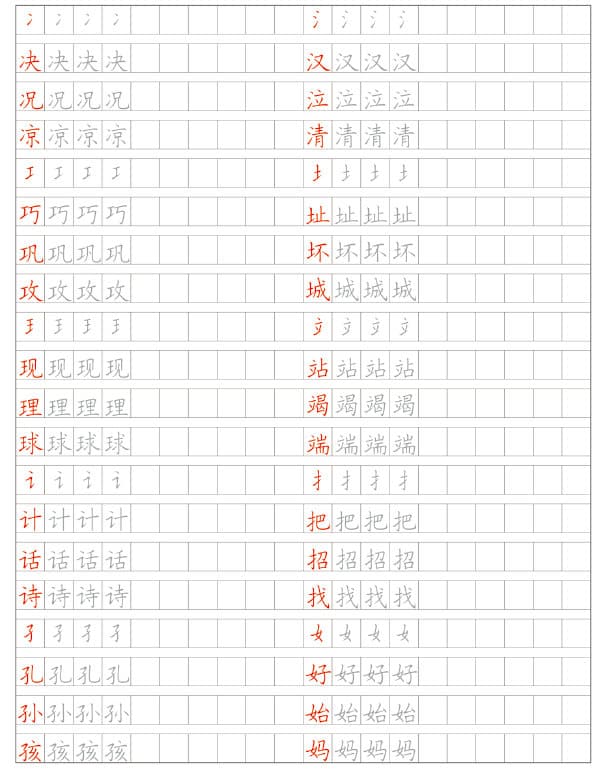 冫 冫 冫 冫 氵 氵 氵 氵
决 决 决 决 汉 汉 汉 汉
况 况 况 况 泣 泣 泣 泣
凉 凉 凉 凉 清 清 清 清
工 工 工 工 土 土 土 土
巧 巧 巧 巧 址 址 址 址
巩 巩 巩 巩 坏 坏 坏 坏
攻 攻 攻 攻 城 城 城 城
王 王 王 王 立 立 立 立
现 现 现 现 站 站 站 站
理 理 理 理 竭 竭 竭 竭
球 球 球 球 端 端 端 端
讠 讠 讠 讠 扌 扌 扌 扌
计 计 计 计 把 把 把 把
话 话 话 话 招 招 招 招
诗 诗 诗 诗 找 找 找 找
子 子 子 子 女 女 女 女
孔 孔 孔 孔 好 好 好 好
孙 孙 孙 孙 始 始 始 始
孩 孩 孩 孩 妈 妈 妈 妈